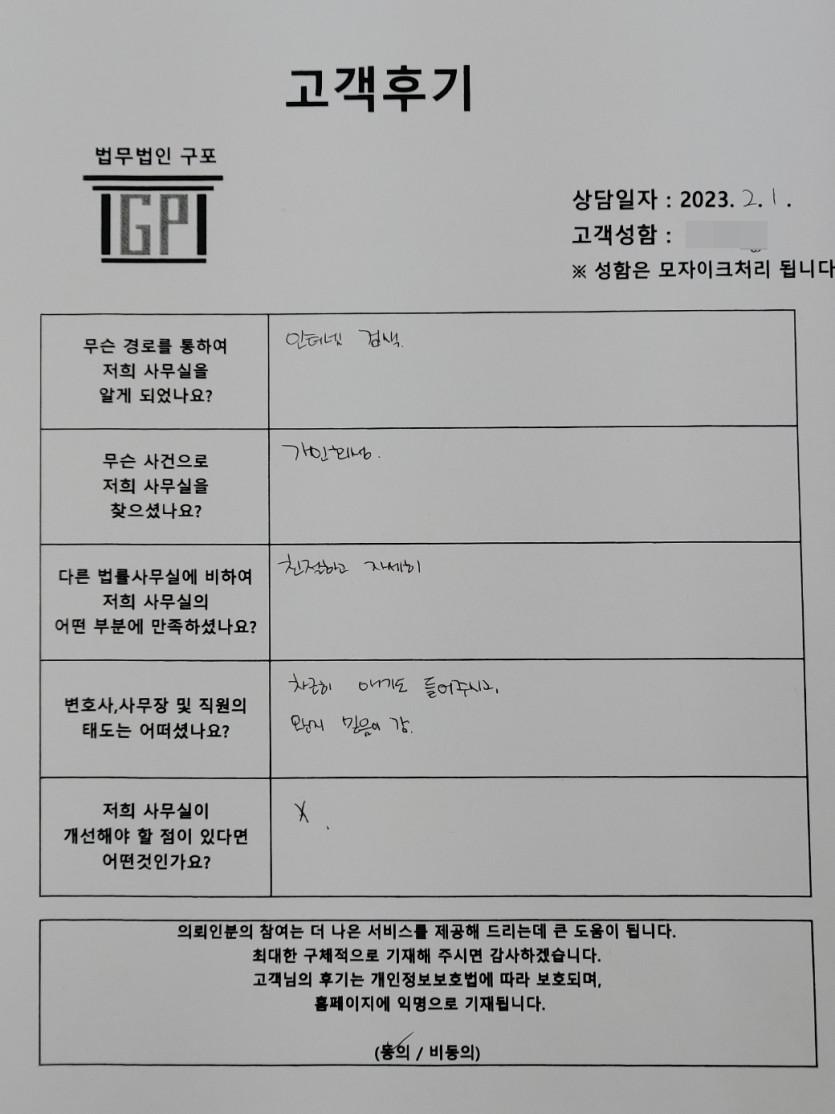 고객후기
법무법인 구포
GP
상담일자 : 2023. 2. 1.
고객성함 :
※ 성함은 모자이크처리 됩니다
무슨 경로를 통하여
저희 사무실을
알게 되었나요?
인터넷 검색.
무슨 사건으로
저희 사무실을
찾으셨나요?
개인회생.
다른 법률사무실에 비하여
저희 사무실의
어떤 부분에 만족하셨나요?
친절하고 자세히
변호사,사무장 및 직원의
태도는 어떠셨나요?
차근히 얘기도 들어주시고,
왠지 믿음이 감.
저희 사무실이
개선해야 할 점이 있다면
어떤것인가요?
X.
의뢰인분의 참여는 더 나은 서비스를 제공해 드리는데 큰 도움이 됩니다.
최대한 구체적으로 기재해 주시면 감사하겠습니다.
고객님의 후기는 개인정보보호법에 따라 보호되며,
홈페이지에 익명으로 기재됩니다.
(동의 / 비동의)